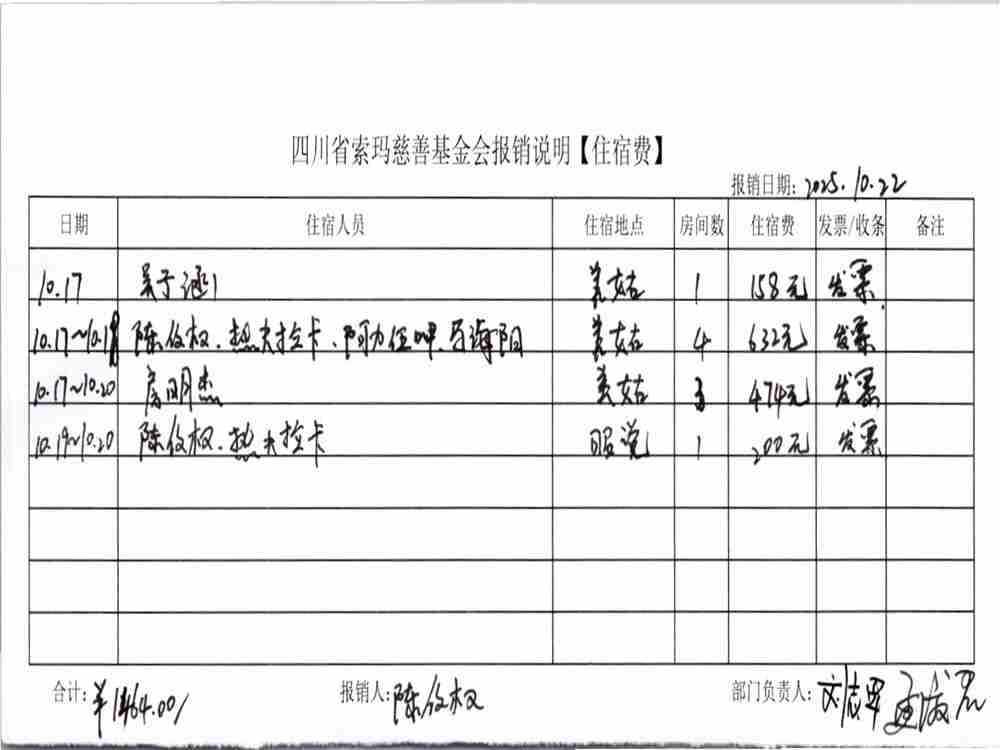 四川省索玛慈善基金会报销说明【住宿费】
报销日期: 2025.10.22
日期 住宿人员 住宿地点 房间数 住宿费 发票/收条 备注
10.17 吴于涵 美姑 1 158元 发票
10.17~10.19 陈仪权、热夫拉卡、阿力伍呷、马海阳 美姑 4 632元 发票
10.17~10.20 房明杰 美姑 3 474元 发票
10.19~10.20 陈仪权、热夫拉卡 昭觉 1 200元 发票
合计: ¥1464.00/ 报销人: 陈仪权 部门负责人: